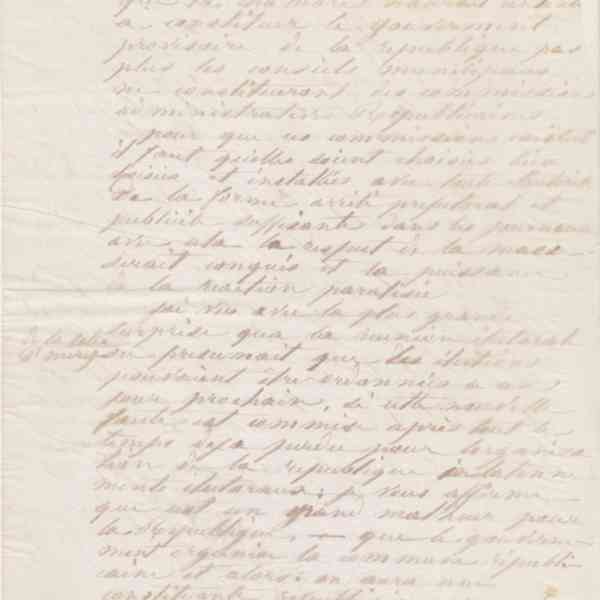 a constituer le gouvernement
provisoire de la republique pas
plus les conseils municipaux
ne constitueront des commissions
administratives republicaines
pour que ces commissions
il faut qu'elles soient choisies bien
et installées avec toute
de la forme arrêté prefectoral et
publicité suffisante dans les journaux
avec cela le respect de la masse
serait conquis et la puissance
de la reaction paralisée
j'ai vu avec la plus grande
surprise que la reunion electorale
de la salle
presumait que les elections
pouvaient être à un
jour prochain, si cette nouvelle
faute est commise après tout le
temps deja perdu pour l'organisa
tion de la republique
je vous affirme
que c'est un grand malheur pour
la Republique. — que le gouverne
ment organise la commune republi
caine et alors on aura une
constituante